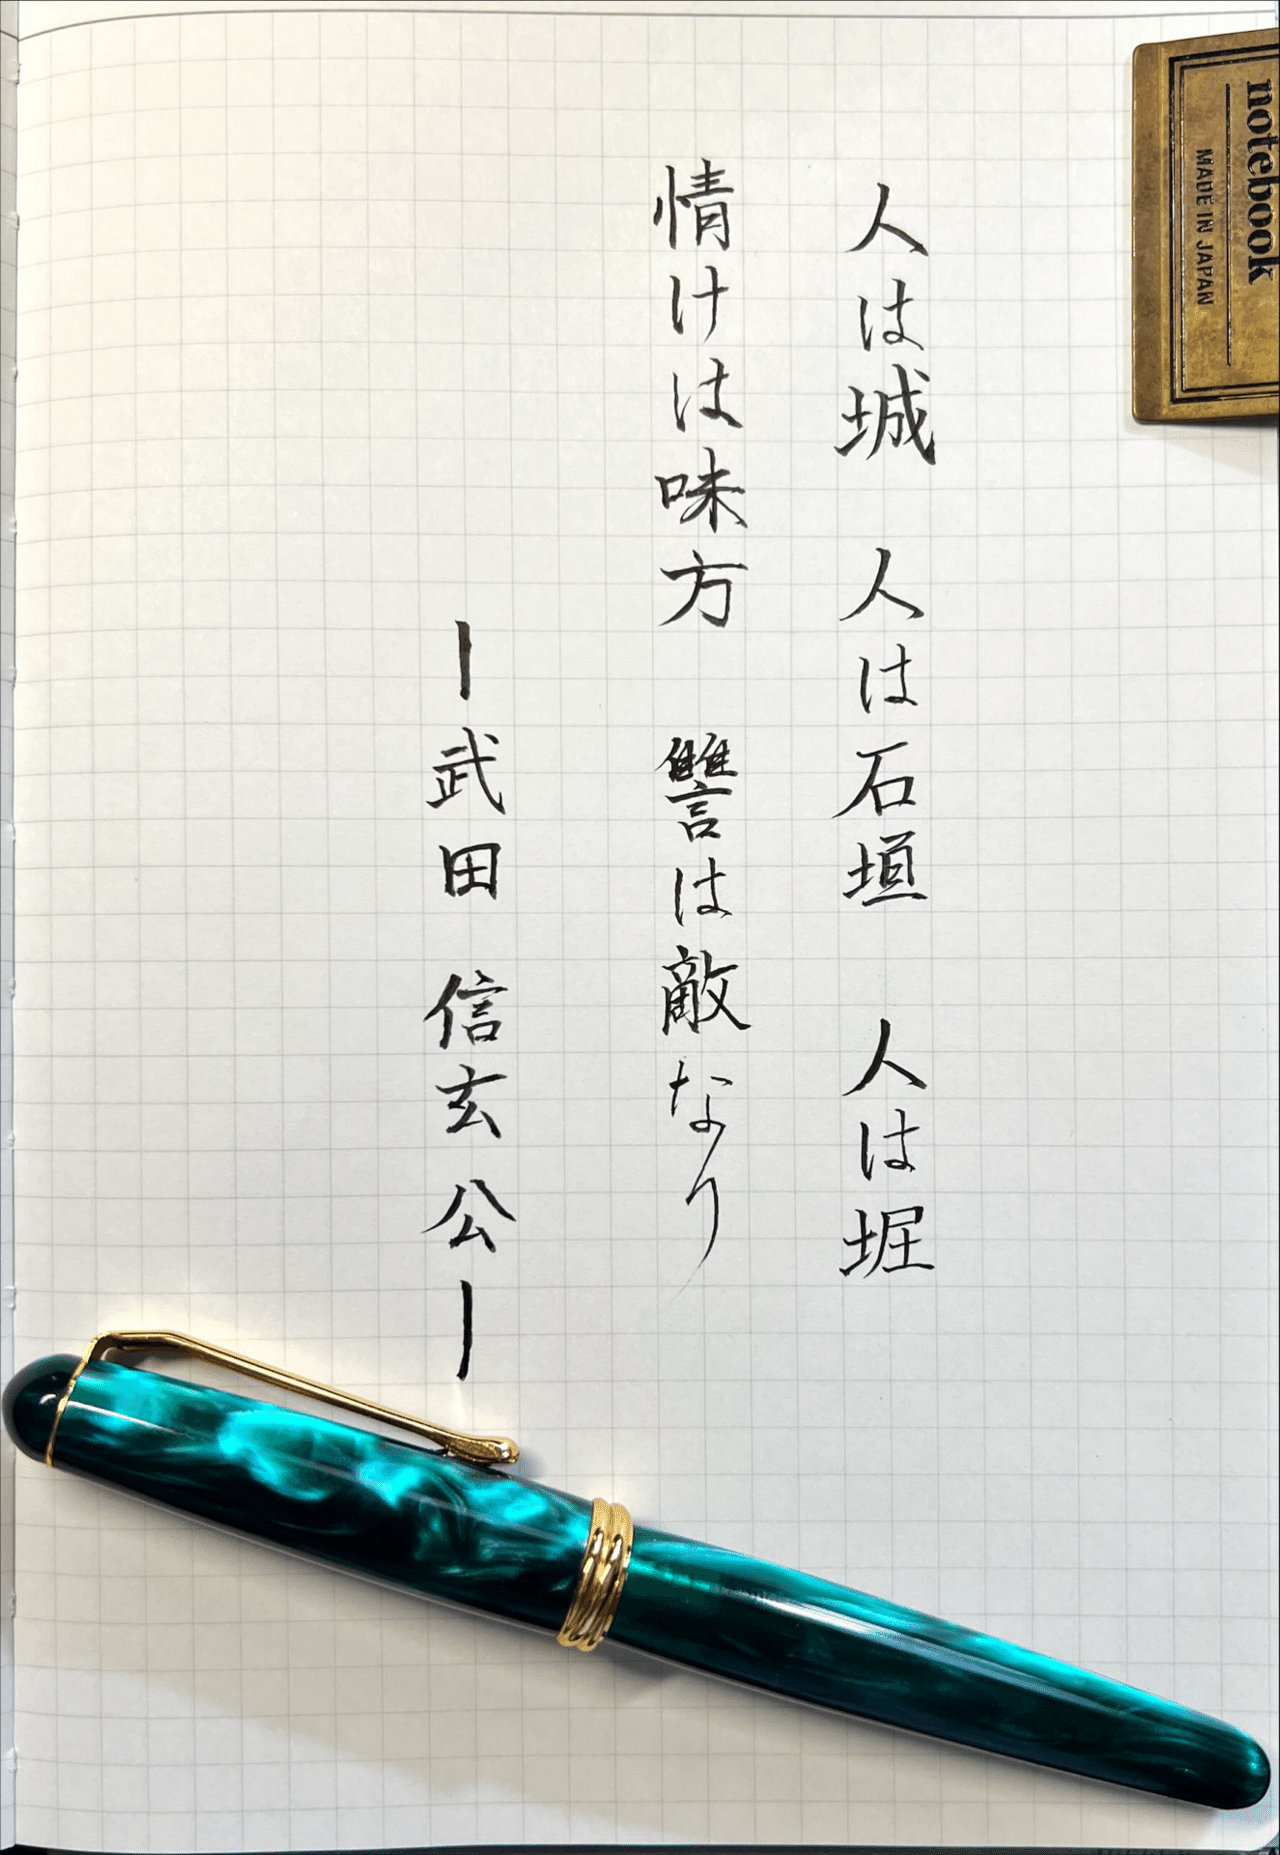 人は城　人は石垣　人は堀
情けは味方　讐は敵なり
ー武田 信玄 公ー
notebook
MADE IN JAPAN